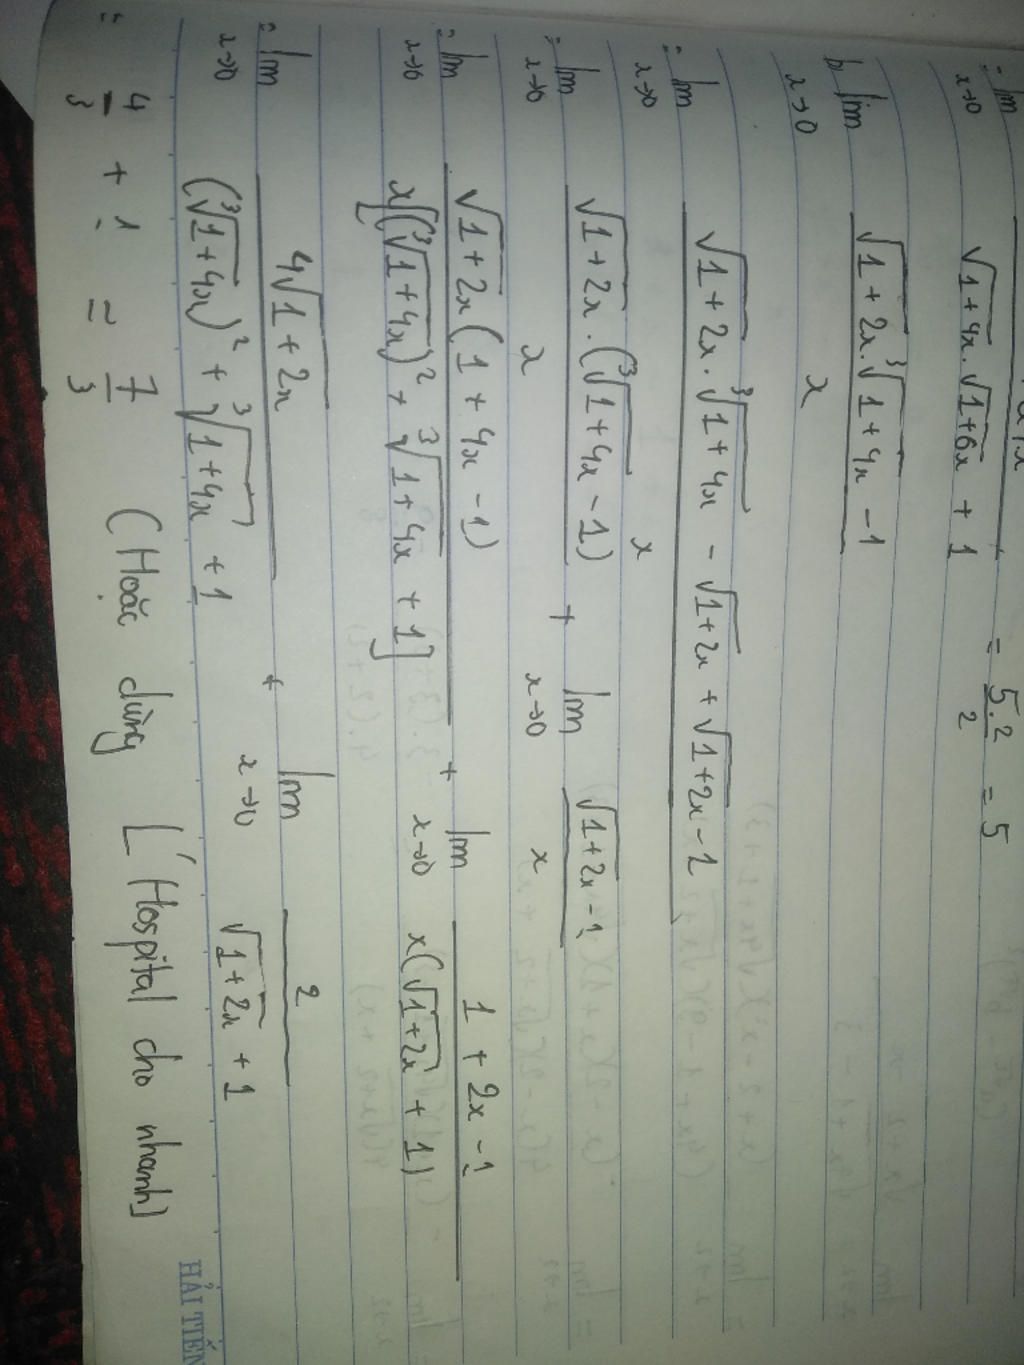 = lim x→0 / √1+4x . √1+6x + 1 = 5.2/2 = 5
b, lim x→0 (√1+2x . ³√1+4x − 1) / x
= lim x→0 (√1+2x . ³√1+4x − √1+2x + √1+2x − 1) / x
= lim x→0 √1+2x . (³√1+4x − 1) / x + lim x→0 (√1+2x − 1) / x
= lim x→0 √1+2x (1 + 4x − 1) / x[(³√1+4x)² + ³√1+4x + 1] + lim x→0 (1 + 2x − 1) / x(√1+2x + 1)
= lim x→0 4√1+2x / (³√1+4x)² + ³√1+4x + 1 + lim x→0 2 / √1+2x + 1
= 4/3 + 1 = 7/3 (Hoặc dùng L'Hospital cho nhanh)
HẢI TIẾN